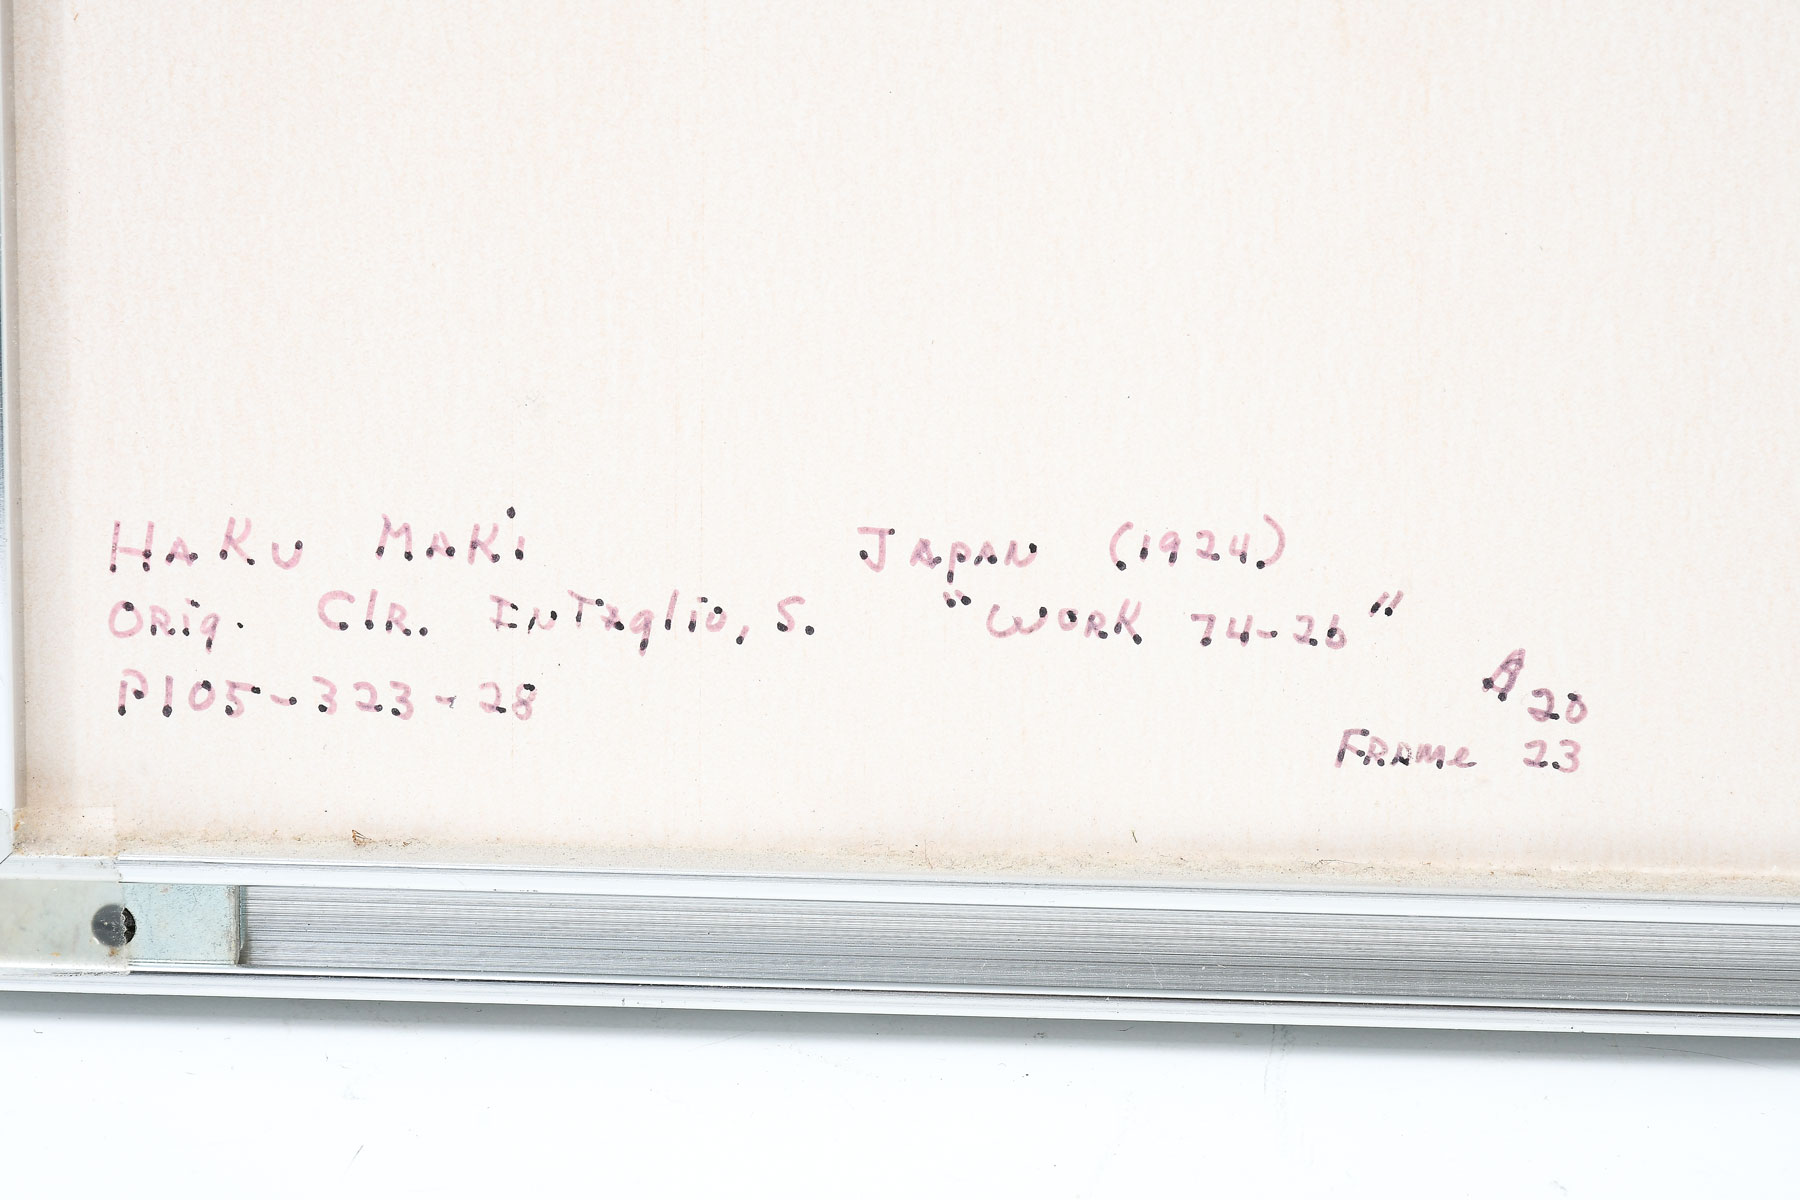 HAKU MAKi JAPAN (1924)
ORig. ClR. INTaglio, S. "WORK 74-26"
P105-323-28
A 20
FRAMe 23